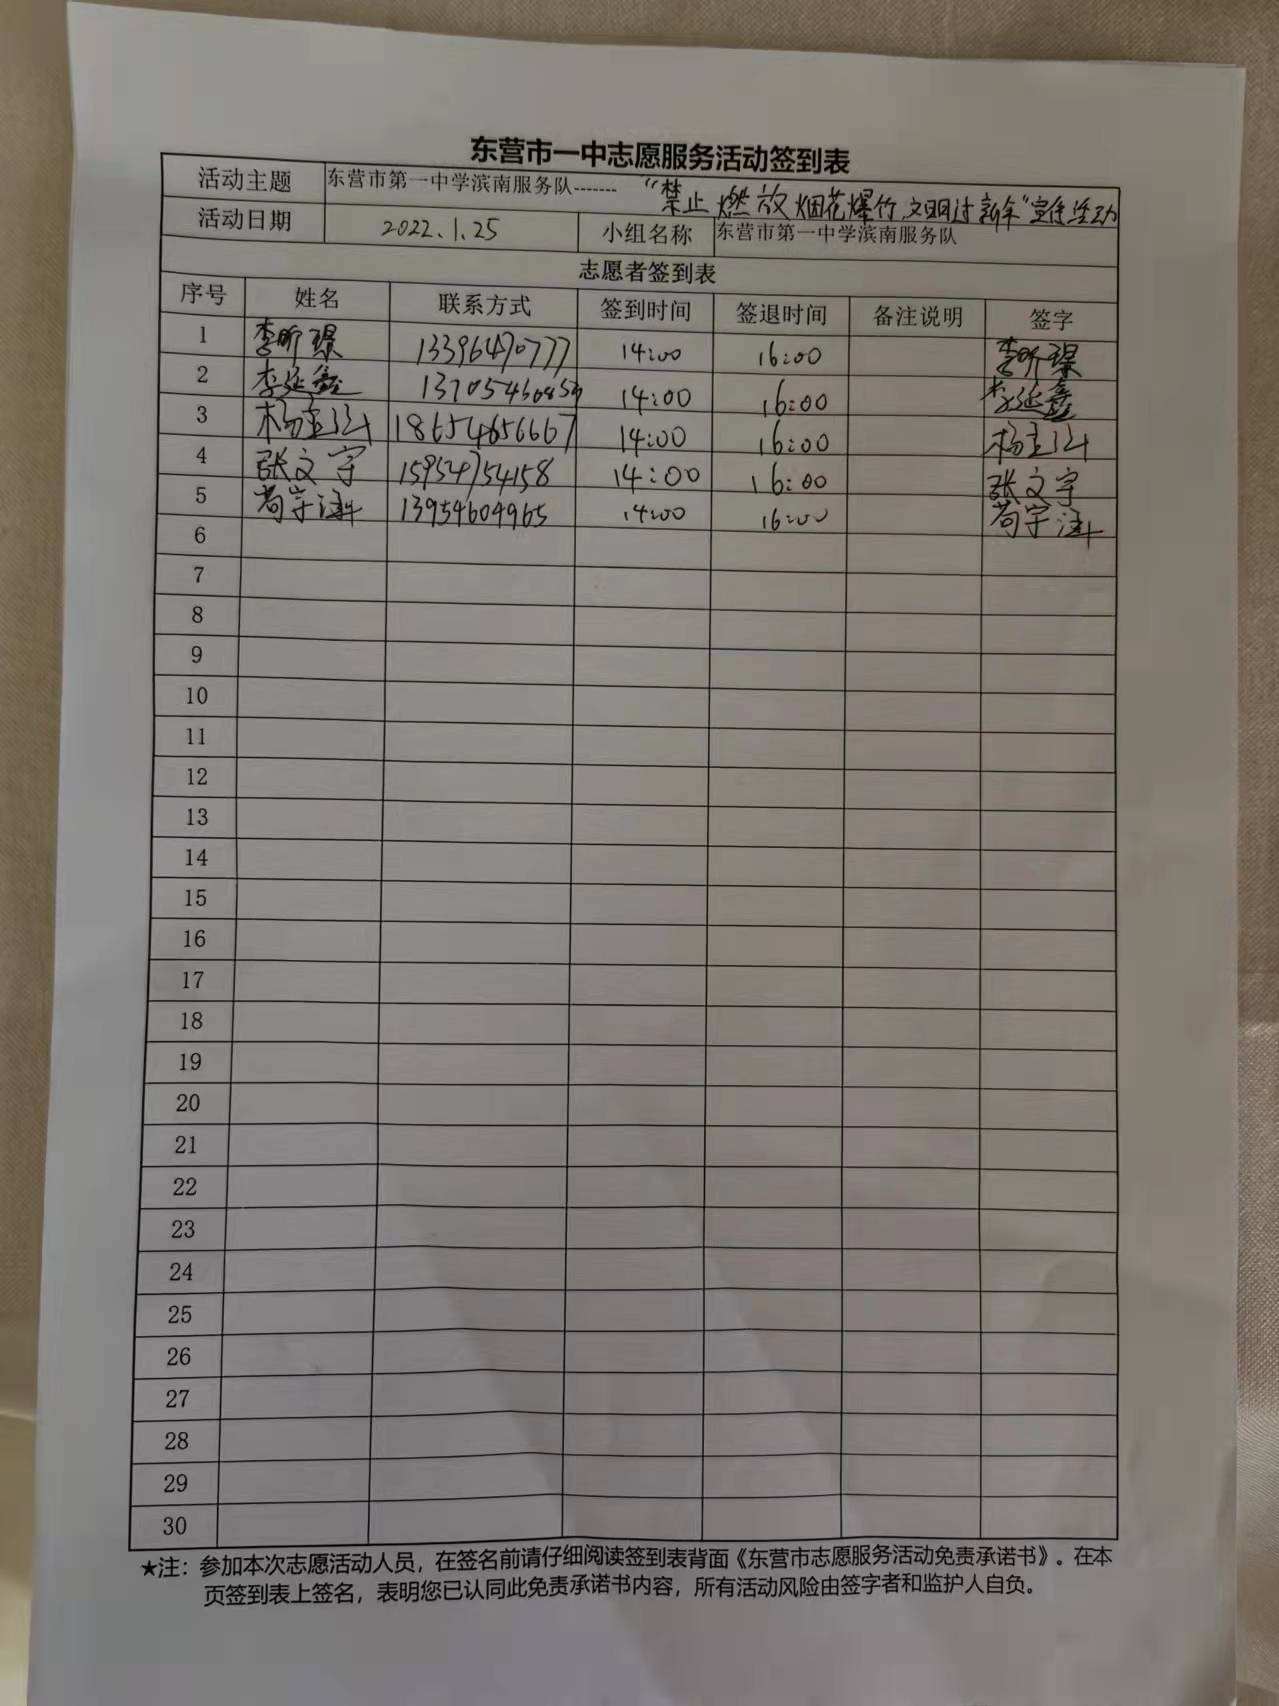 东营市一中志愿服务活动签到表
活动主题 东营市第一中学滨南服务队------- “禁止燃放烟花爆竹,文明过新年”宣传活动
活动日期 2022.1.25 小组名称 东营市第一中学滨南服务队
志愿者签到表
序号 姓名 联系方式 签到时间 签退时间 备注说明 签字
1 李昕璟 13396490777 14:00 16:00 李昕璟
2 李延鑫 14:00 16:00 李延鑫
3 18654656667 14:00 16:00
4 张文宇 15954754158 14:00 16:00 张文宇
5 苟宇涵 13954604965 14:00 16:00 苟宇涵
6
7
8
9
10
11
12
13
14
15
16
17
18
19
20
21
22
23
24
25
26
27
28
29
30
★注：参加本次志愿活动人员，在签名前请仔细阅读签到表背面《东营市志愿服务活动免责承诺书》。在本
页签到表上签名，表明您已认同此免责承诺书内容，所有活动风险由签字者和监护人自负。